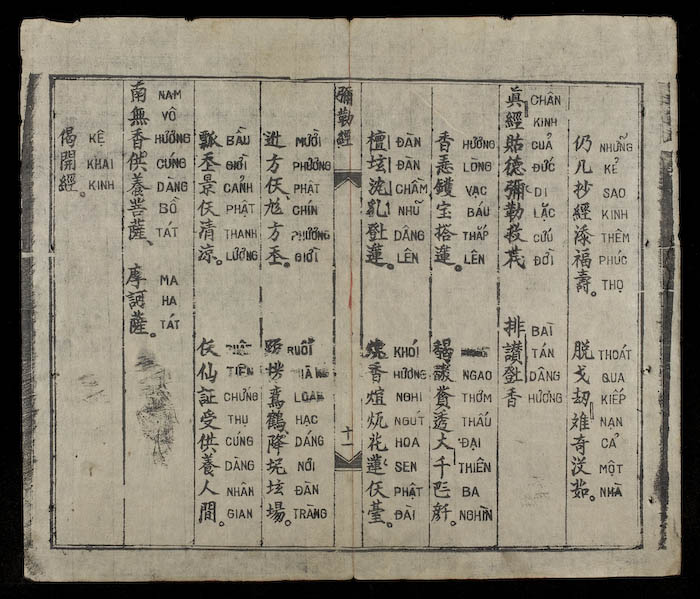 仍几抄經添福壽。
NHỮNG KẺ SAO KINH THÊM PHÚC THỌ
脱戈刼难奇沒茹。
THOÁT QUA KIẾP NẠN CẢ MỘT NHÀ
眞經貼德彌勒救
CHÂN KINH CUẢ ĐỨC DI LẶC CỨU ĐỜI
排讃登香
BAÌ TÁN DÂNG HƯƠNG
香鑊宝搭蓮。
HƯƠNG LÒNG VẠC BÁU THẮP LÊN
透大千
NGAO THƠM THẤU ĐẠI THIÊN BA NGHÌN
檀坛沈乳登蓮。
ĐÀN ĐÀN CHẦM NHŨ DÂNG LÊN
香花蓮仸臺。
KHÓI HƯƠNG NGHI NGÚT HOA SEN PHẬT ĐÀI
彌勒經
十一
方仸方
MƯỜI PHƯƠNG PHẬT CHÍN PHƯƠNG GIỚI
鸞鶴降坛場。
RUỔI LOAN HẠC DÁNG NƠI ĐÀN TRÀNG
瓢景仸清涼。
BẦU GIỚI CẢNH PHẬT THANH LƯƠNG
仸仙証受供養人間。
PHẬT TIÊN CHỨNG THỤ CÚNG DÀNG NHÂN GIAN
南無香供養菩薩、
NAM VÔ HƯƠNG CÚNG DÀNG BỒ TÁT
摩訶薩。
MA HA TÁT
偈開經。
KỆ KHAI KINH